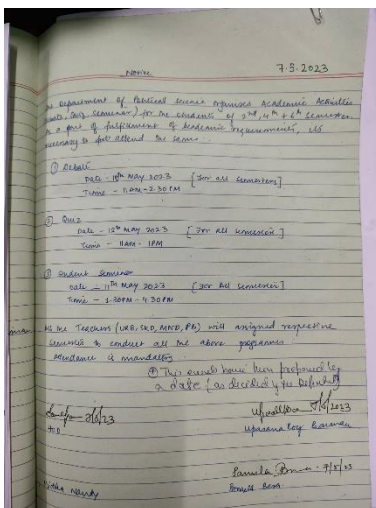 7.5.2023
Notice
The Department of Political Science organises Academic Activities
(Debate, Quiz, Seminar) for the students of 2nd, 4th & 6th Semester.
As a part of fulfilment of Academic requirements, its
necessary to attend the same.
① Debate
Date - 10th May 2023 [For all Semesters]
Time - 11AM - 2:30 PM
② Quiz
Date - 12th May 2023 [For all semester]
Time - 11AM - 1PM
③ Student Seminar
Date - 11th May 2023 [For all semester]
Time - 1.30PM - 4:30PM
All the Teachers (URB, SKD, MND, PB) will assigned respective
Semester to conduct all the above programmes
Attendance is mandatory.
This events have been
a date (as decided
Upasana Roy Barman